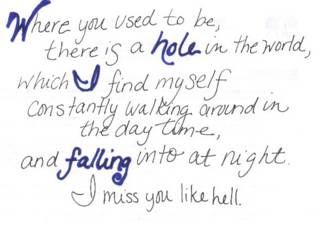 Where you used to be,
there is a hole in the world,
which I find myself
constantly walking around in
the day time,
and falling into at night.
I miss you like hell.